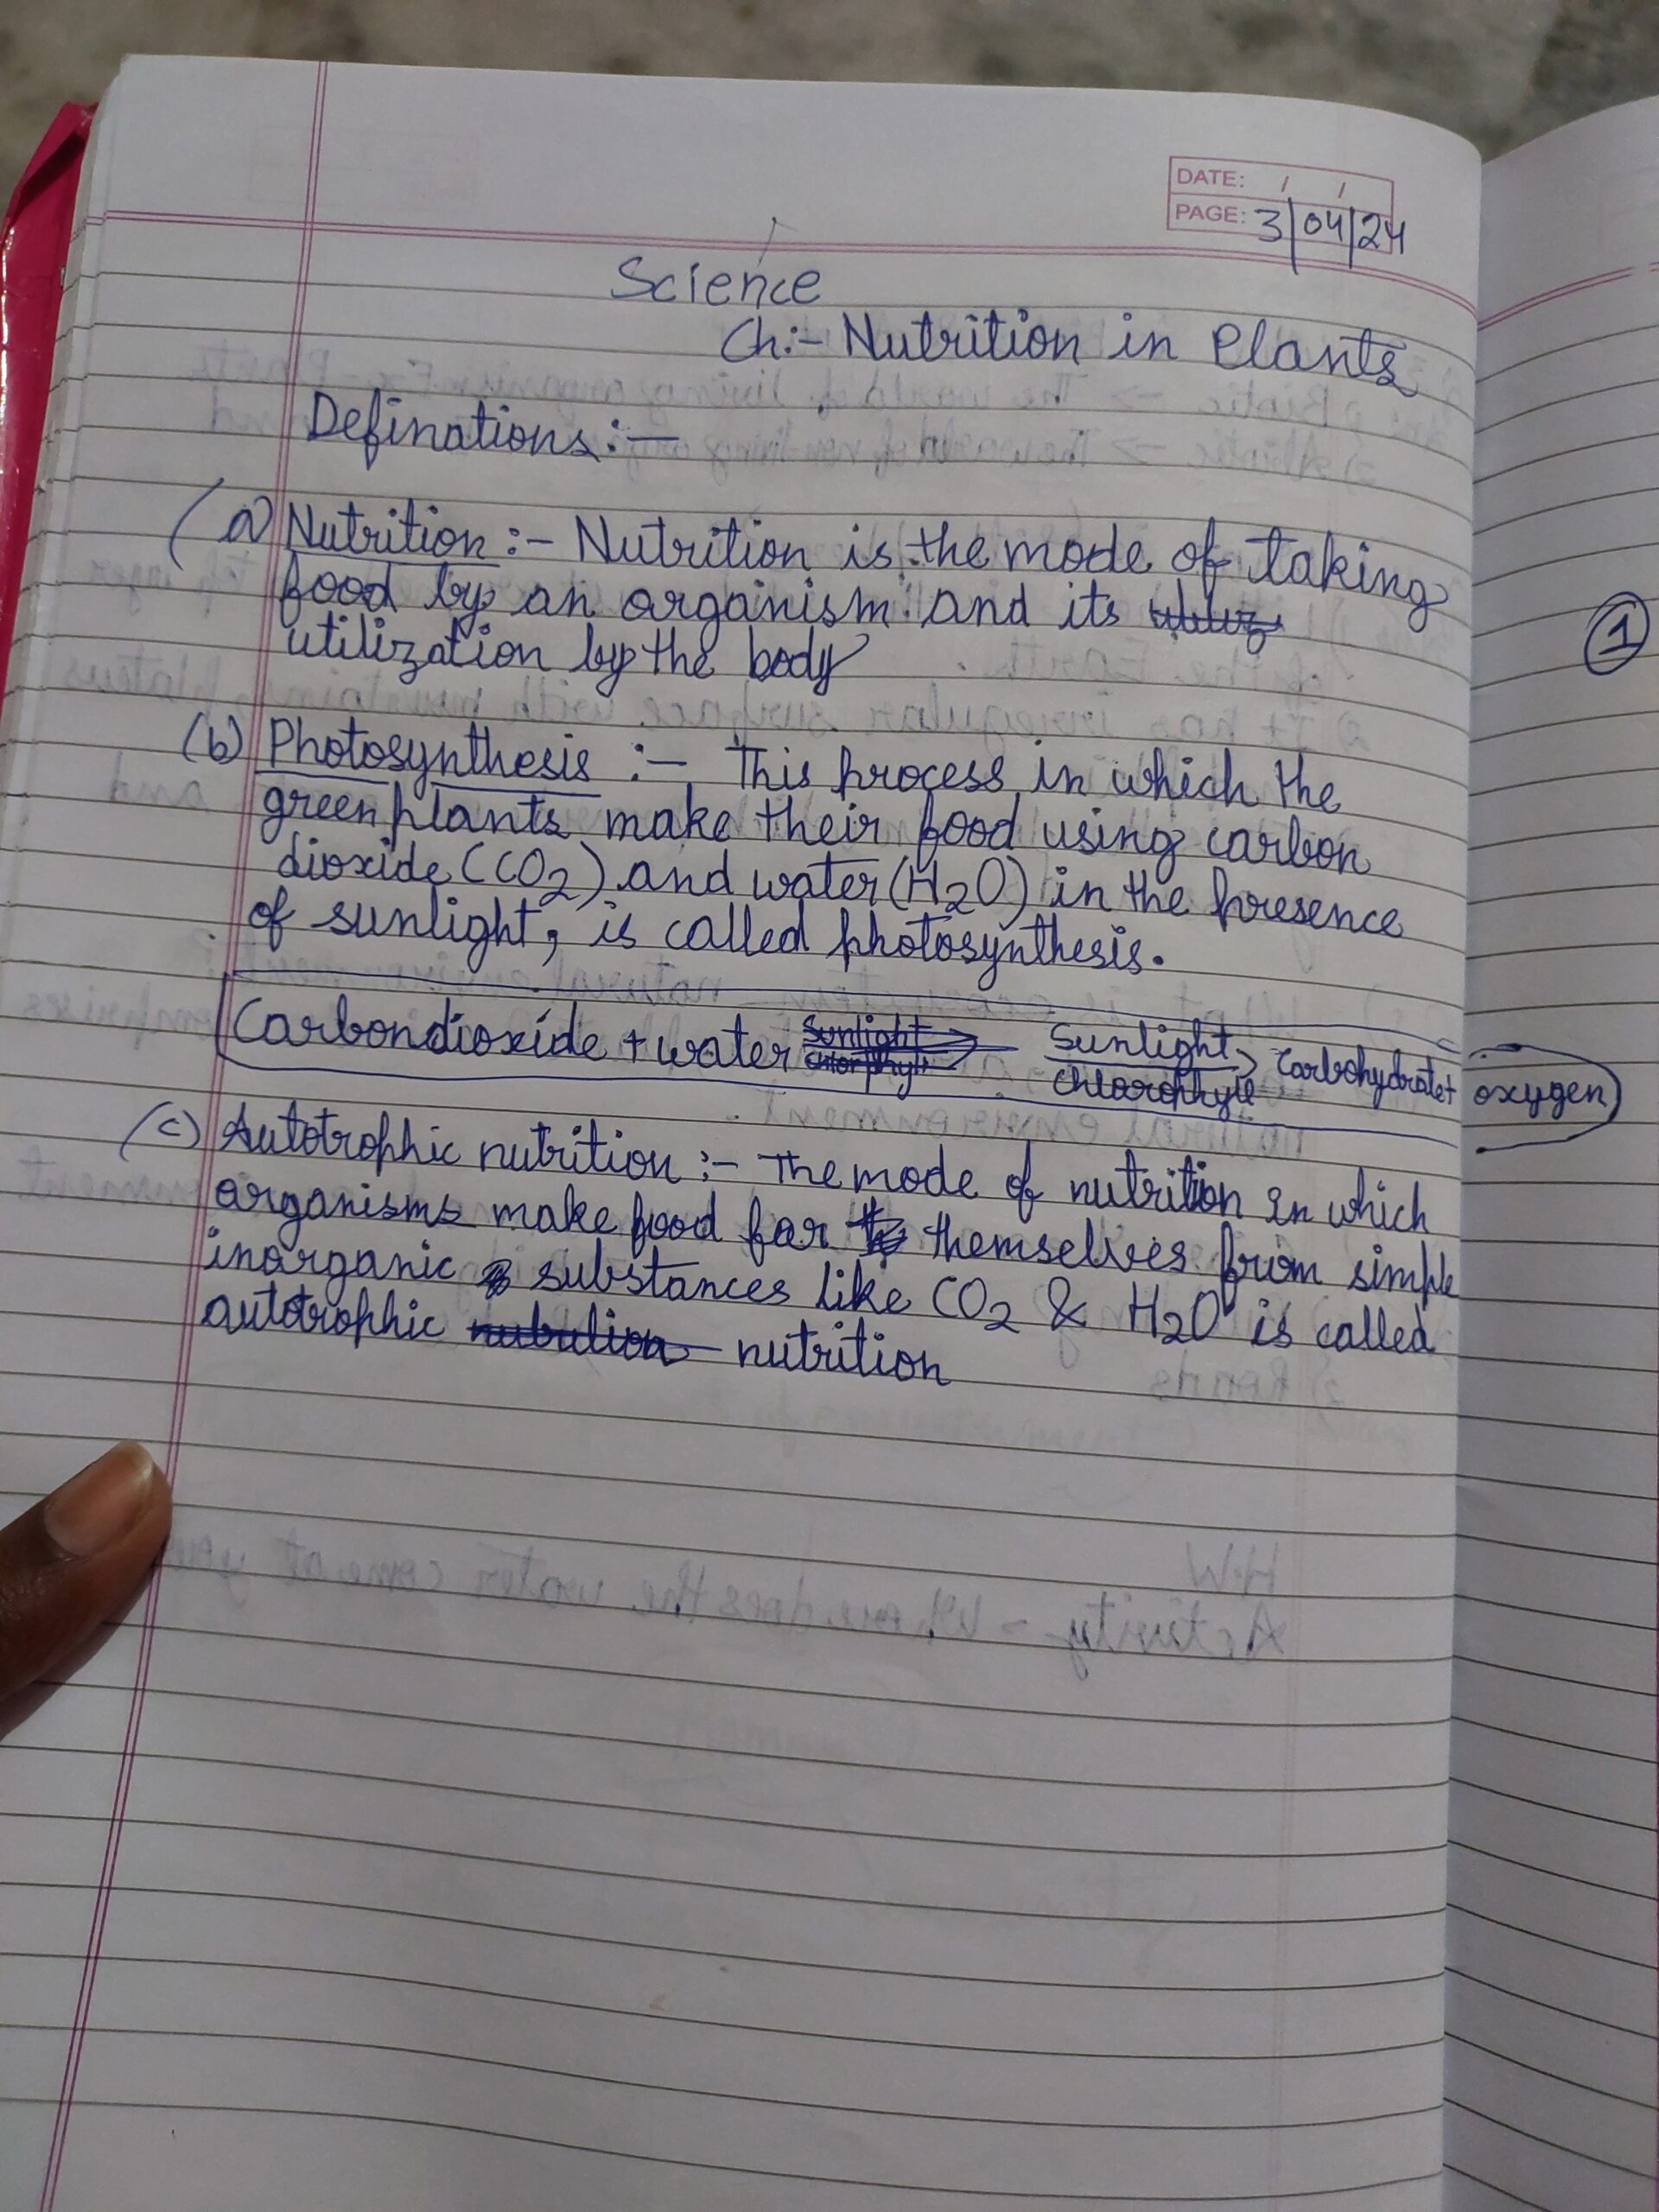 DATE: / /
PAGE: 3/04/24
Science
Ch:- Nutrition in Plants
Definations:-
(a) Nutrition :- Nutrition is the mode of taking
food by an organism and its
utilization by the body
(b) Photosynthesis :- This process in which the
green plants make their food using carbon
dioxide (CO2) and water (H2O) in the presence
of sunlight, is called photosynthesis.
Carbondioxide + water Sunlight Chlorphyll Sunlight Chlorophyll Carbohydrate+ oxygen
(c) Autotrophic nutrition :- The mode of nutrition in which
organisms make food for themselves from simple
inorganic substances like CO2 & H2O is called
autotrophic nutrition nutrition
1